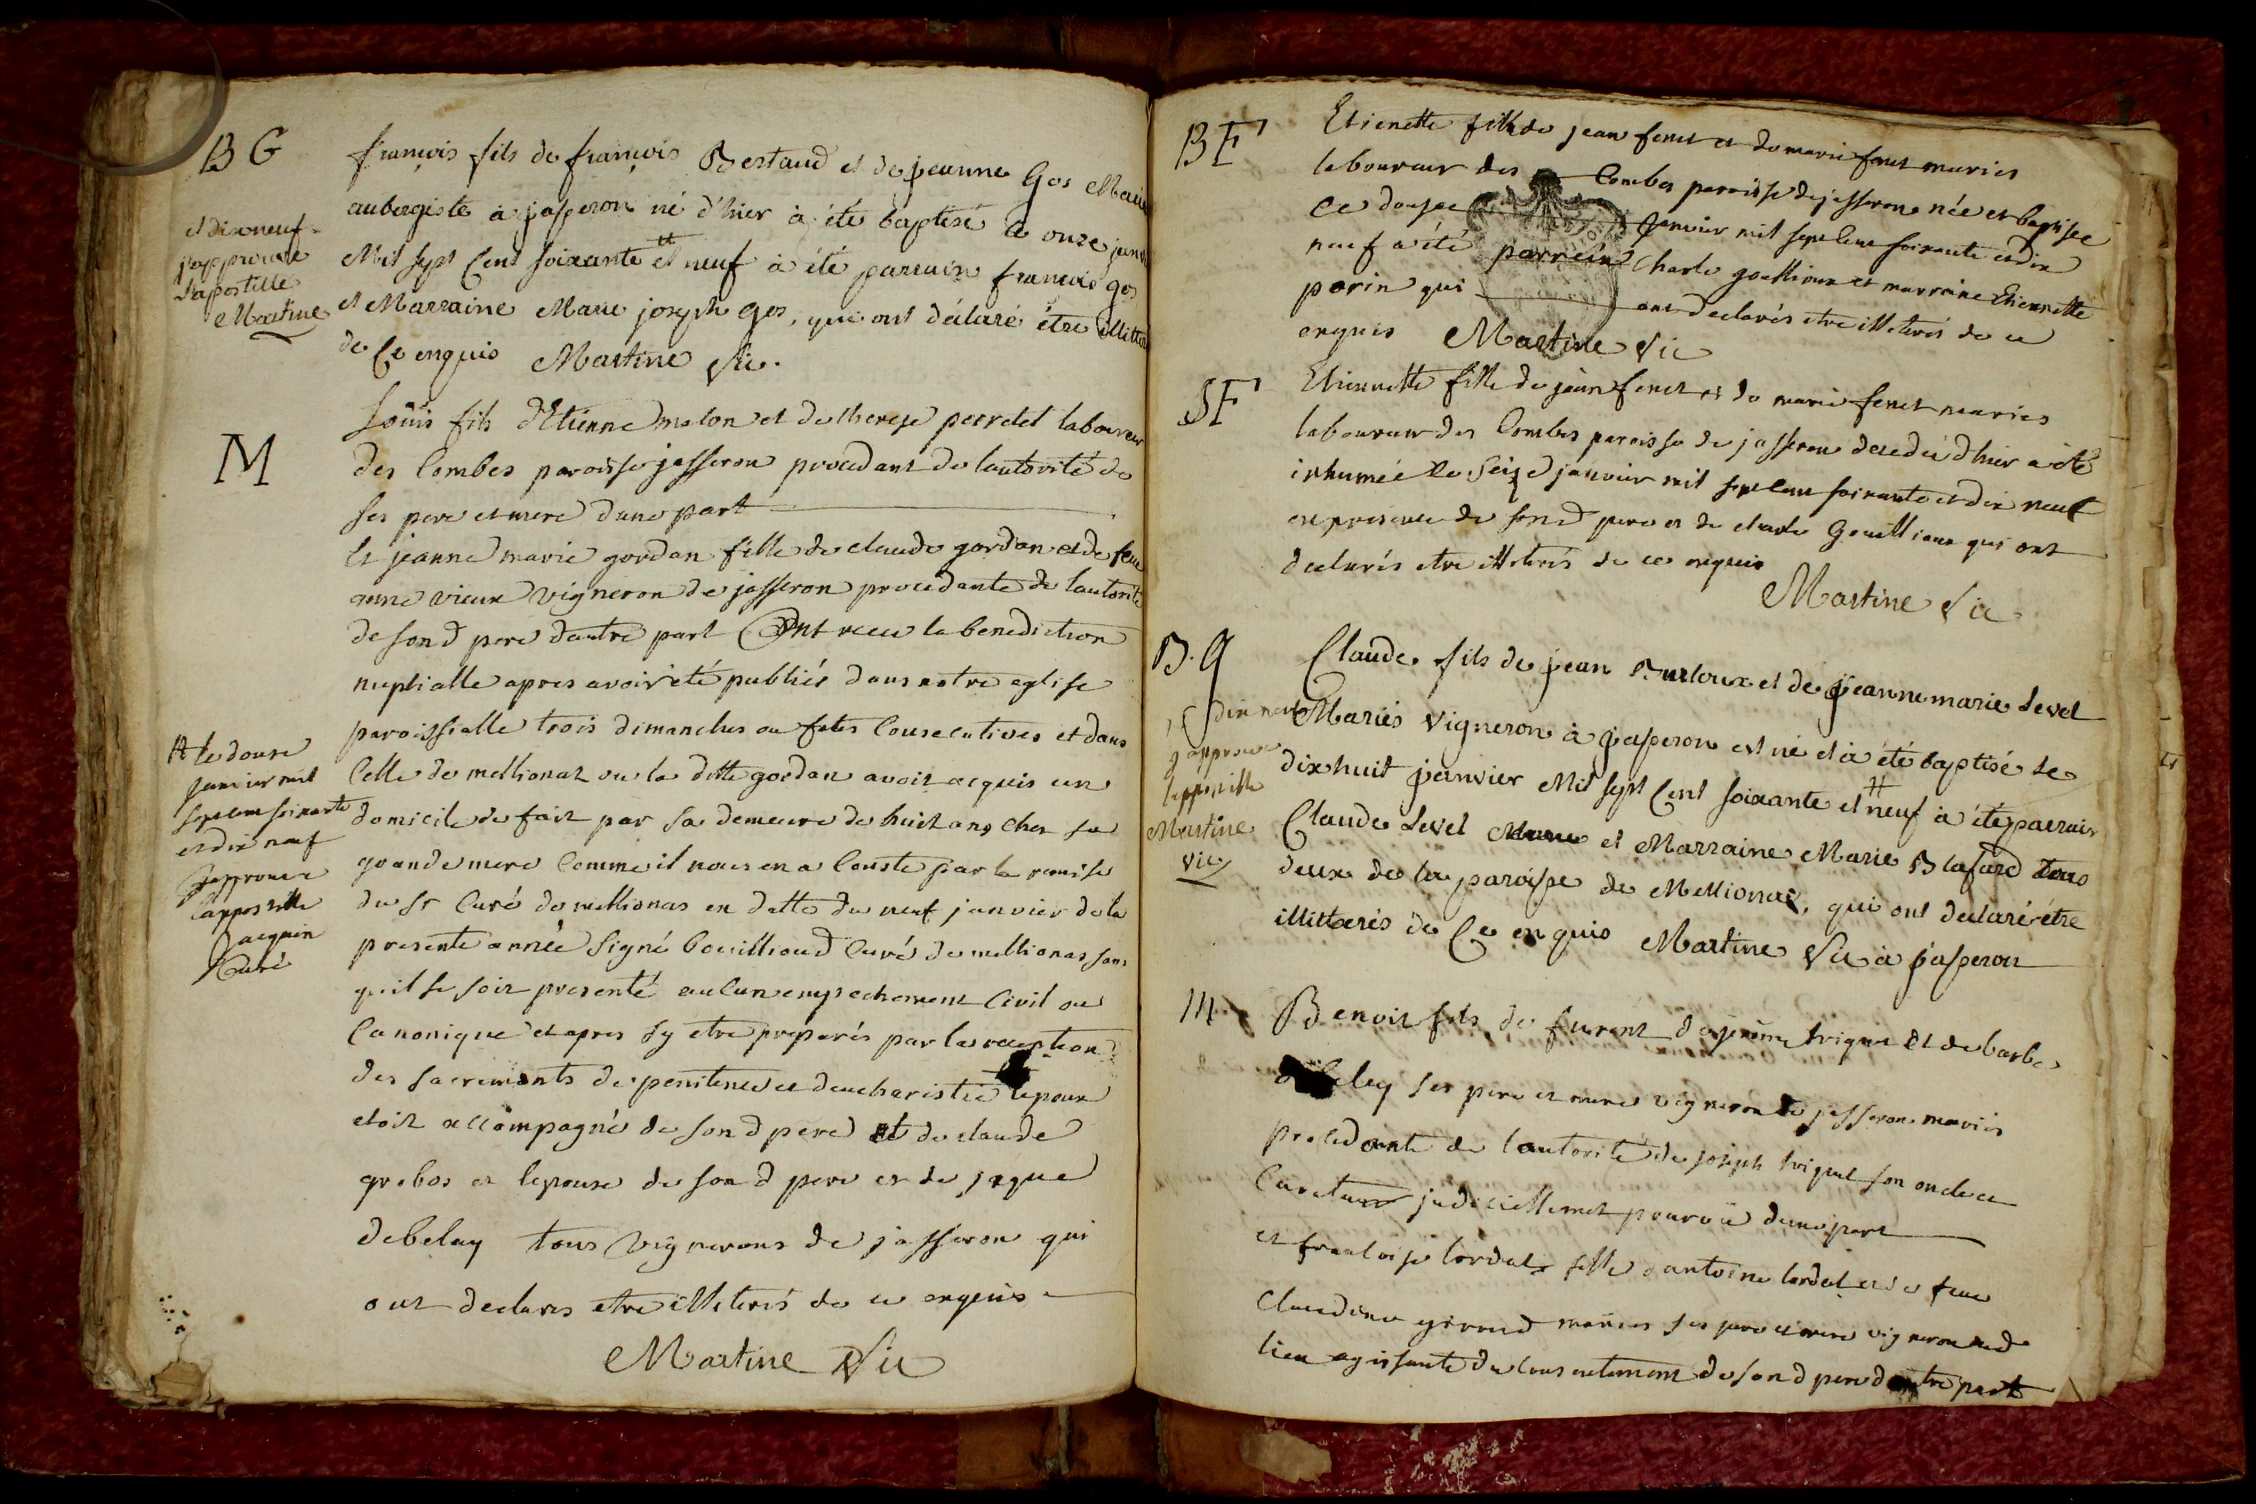 BG
françois fils de françois Bestaud et de jeanne Gos Mariés
aubergiste à jasseron né d'hier à été baptisé le onze janvier
Mil sept Cent soixante et neuf à été parrain françois gos
et Marraine Marie joseph gos, qui ont déclaré être illitterés
de Ce enquis Martine Vic.
et dix neuf
j'approuve
l'apostille
Martine
M
Loüis fils d'Etienne molon et de therese perrdet laboureur
des Combes paroisse jasseron procedant de lautorité de
ses pere et mere dune part
Et jeanne marie gordan fille de claude gordan et de feue
anne vieux vigneron de jasseron procedante de lautorité
de son d pere dautre part Ont recu la benediction
nuptialle apres avoir été publiés dans notre eglise
paroissialle trois dimanches ou fetes Consecutives et dans
Celle de mellionas ou la ditte gordan avoit acquis un
domicile de fait par sa demeure de huit ans chez sa
grande mere Comme il nous en a Consté par la remise
du sr Curé de mellionas en datte du neuf janvier de la
presente année Signé bouillioud Curé de mellionas sans
quil se soit presenté aucun empechement Civil ou
Canonique et apres sy etre preparés par la reception
des sacrements de penitence et deucharistie lepoux
etoit accompagné de son d pere et de claude
grobos et lepouse de son d pere et de jaque
debelay tous vignerons de jasseron qui
ont declarés etre illiterés de ce enquis
Martine Vic
# le douse
janvier mil
sept cent soixante
et dix neuf
japprouve
lappostille
Jacquin
Curé
BF
Etienette fille de jean feret et de marie feret mariés
laboureur des Combes paroisse de jasseron née et baptisée
ce douse janvier mil sept Cent soixante et dix
neuf a été parrein Charle goullioux et marreine Etiennette
perin qui ont declarés etre illiterés de ce
enquis Martine Vic
SF
Etiennette fille de jean feret et de marie feret mariés
laboureur des Combes paroisse de jasseron decedée d'hier a été
inhumée le seize janvier mil sept Cent soixante et dix neuf
en presence de son d pere et de charle Goullioux qui ont
declarés etre illiterés de ce enquis
Martine Vic
B.G
Claude fils de jean Burtoux et de jeanne marie Level
Mariés vigneron à jasseron est né et à été baptisé le
dix huit janvier Mil sept Cent soixante et neuf à été parrain
Claude Level et Marraine Marie Blafard tous
deux de la paroisse de Mellionas, qui ont déclaré être
illitterés de Ce enquis Martine Vic à jasseron
dix neuf
j approuve
lappostille
Martine
Vic
M
Benoit fils de furent de jerome trigut et de barbe
ses pere et mere vigneron de jasseron mariés
procedante de lautorité de joseph trigut son oncle et
Curateur judiciellement pourvü dune part
et francoise tardat fille dantoine tardat et de feue
Claudine giroud mariés ses pere et mere vigneron aud
lieu agissante du consentement de son d pere dautre part